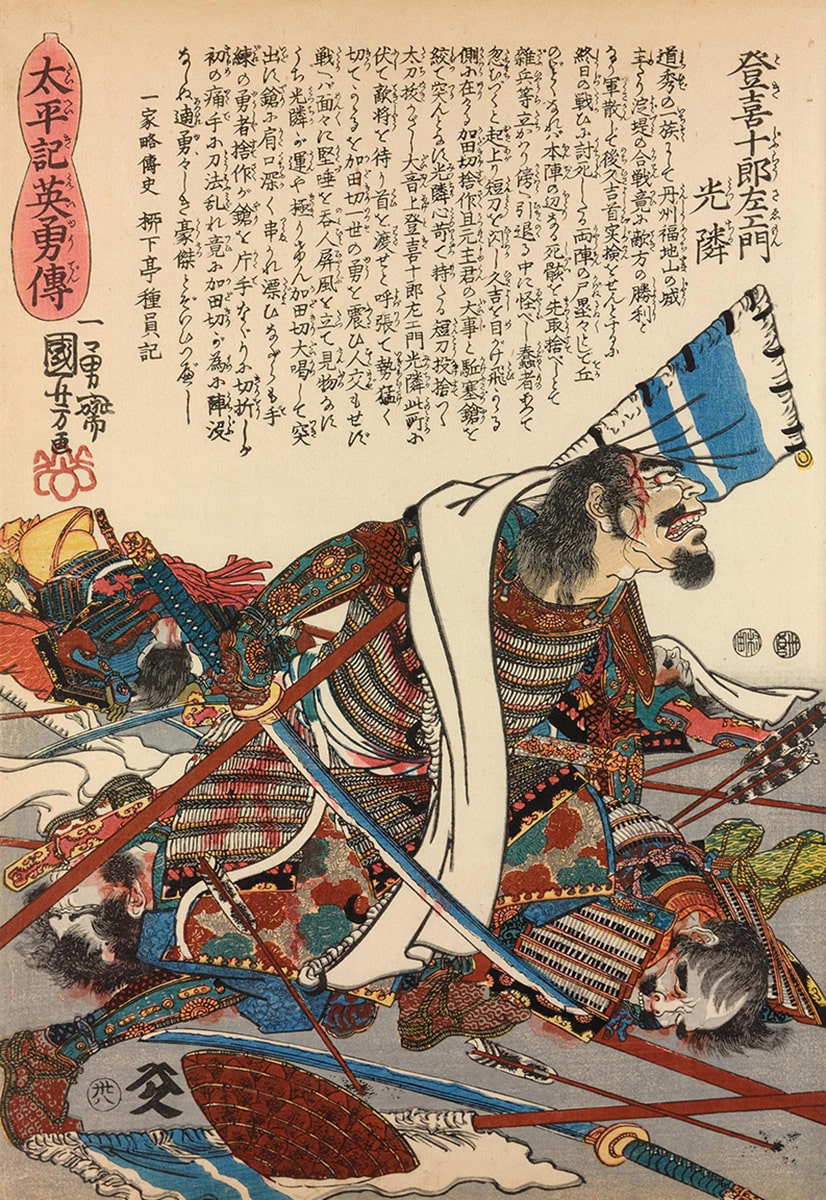 登喜十郎左エ門
光隣
道秀の一族にして丹州福地山の城
主たり淀堤の合戦竟に敵方の勝利と
なり軍散じて後久吉首実検をせんとするに
終日の戦ひに討死したる両陣の尸塁々として丘
のごとくなれば本陣の辺なる死骸を先取捨べしとて
雑兵等立かゝり傍へ引退る中に怪べし蠢者あつて
忽むつくと起上り短刀を閃し久吉を目がけ飛かゝる
側に在ける加田切捨作且元主君の大事と駈塞鎗を
絞て突んとなすに光隣心苛て持たる短刀投捨つゝ
太刀抜かざし大音上登喜十郎左エ門光隣此所に
伏て敵将を待り首を渡せと呼張て勢猛く
切てかゝるを加田切一世の勇を震ひ人交もせず
戦へバ面々に堅唾を呑人屏風を立て見物なす
うち光隣が運や極りけん加田切大喝して突
出す鎗に肩口深く串かれ漂ひながらも手
練の勇者捨作が鎗を片手なぐりに切折しが
初の痛手に刀法乱れ竟に加田切が為に陣没
なしぬ遖勇々しき豪傑とぞいひつべし
一家略傳史 柳下亭種員記
太平記英勇傳
一勇齋
國芳画
卅八